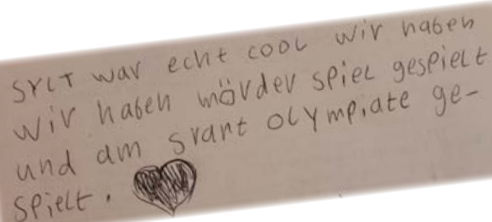 SYLT war echt cool wir haben
wir haben mörder spiel gespielt
und am srant olympiate ge-
spielt.